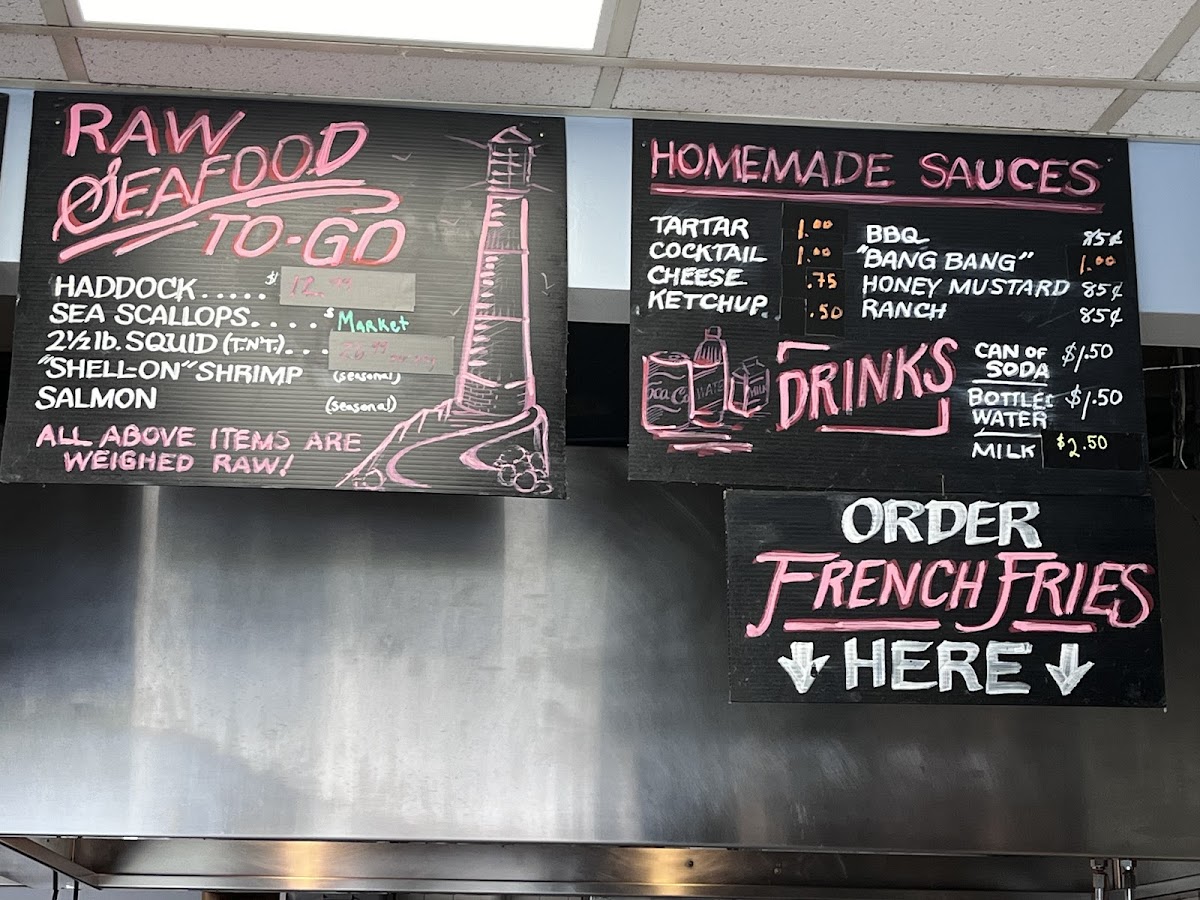 RAW
SEAFOOD
TO-GO
HADDOCK..... $ 12.99
SEA SCALLOPS.... $ Market
2½ lb. SQUID (T.N'T.)...
"SHELL-ON" SHRIMP (seasonal)
SALMON (seasonal)
ALL ABOVE ITEMS ARE
WEIGHED RAW!
HOMEMADE SAUCES
TARTAR 1.00
COCKTAIL 1.00
CHEESE .75
KETCHUP .50
BBQ 85¢
"BANG BANG" 1.00
HONEY MUSTARD 85¢
RANCH 85¢
DRINKS
CAN OF
SODA $1.50
BOTTLED
WATER $1.50
MILK $2.50
ORDER
FRENCH FRIES
HERE